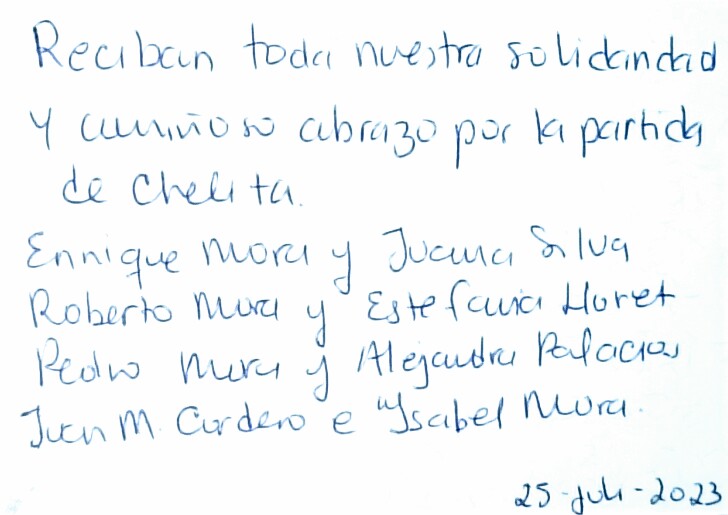 Reciban toda nuestra solidaridad
y cariñoso abrazo por la partida
de Chelita.
Enrique Mora y Juana Silva
Roberto Mora y Estefania Lloret
Pedro Mora y Alejandra Palacios
Juan M. Cordero e Ysabel Mora.
25-Juli-2023